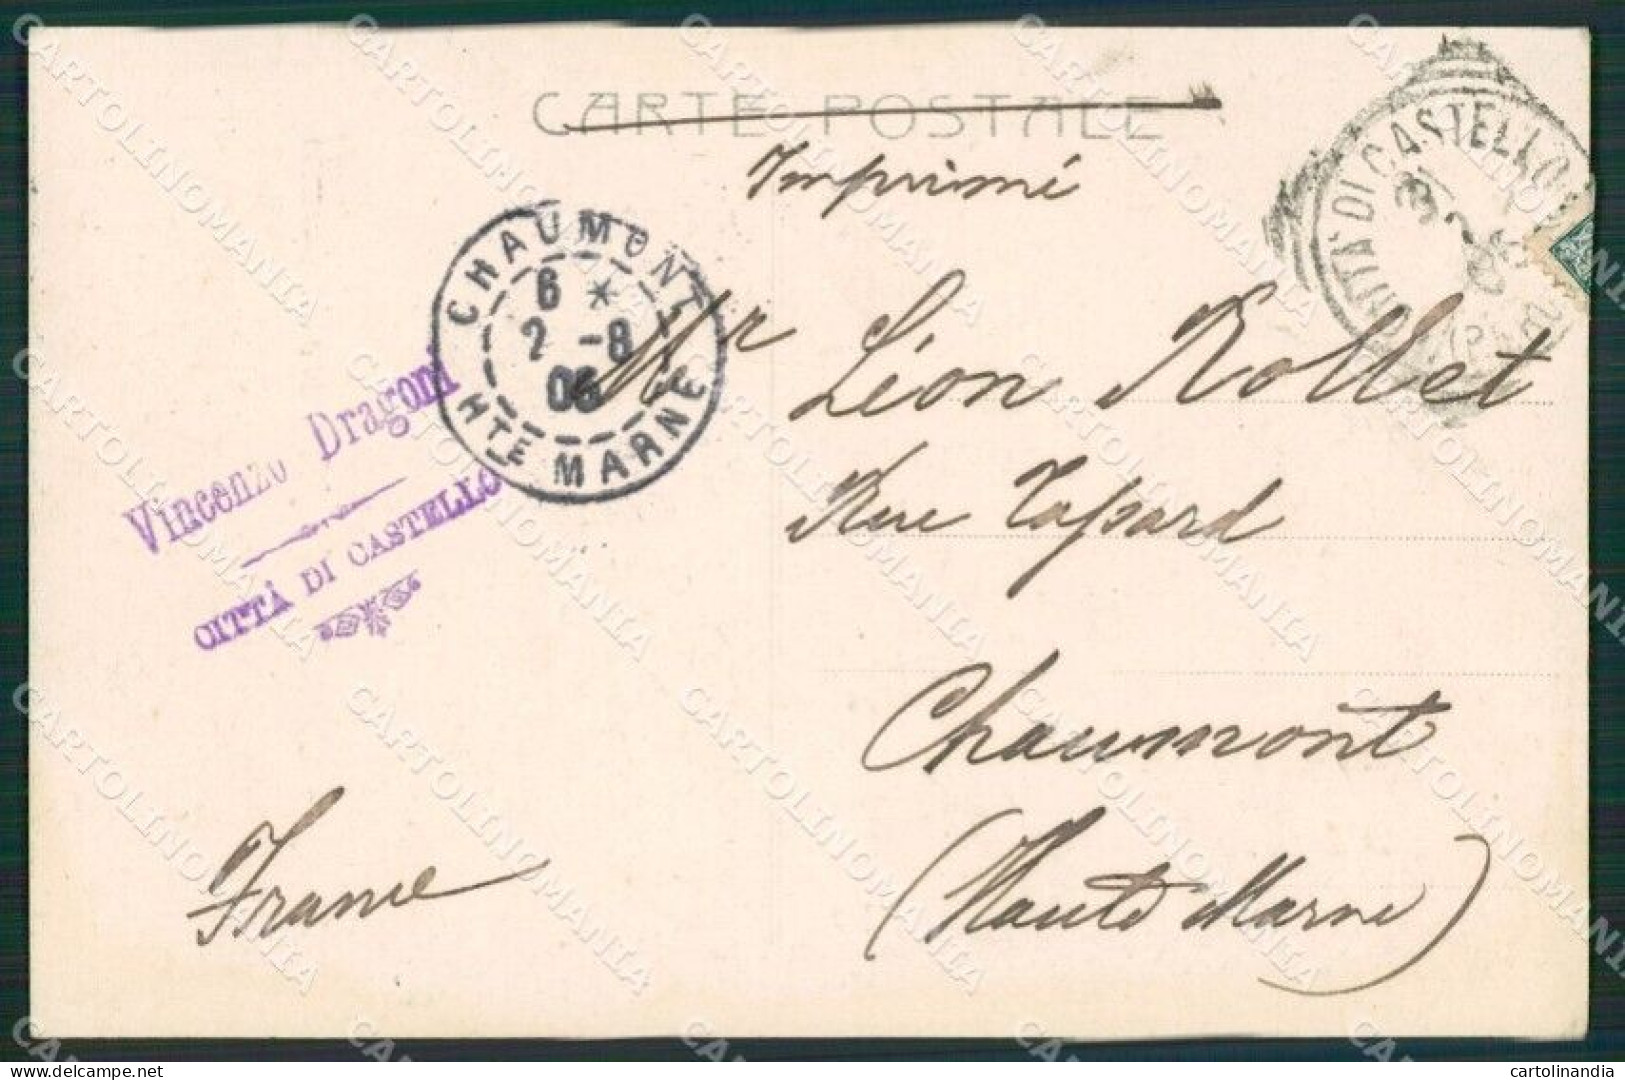 CARTE POSTALE
Imprimé
CITTÀ DI CASTELLO
CHAUMONT
6 *
2 -8
06
HTE MARNE
Mr Léon Rollet
Rue Tapard
Chaumont
(Haute Marne)
France
Vincenzo Dragoni
CITTÁ DI CASTELLO
CARTOLINOMANIA
cartolinandia